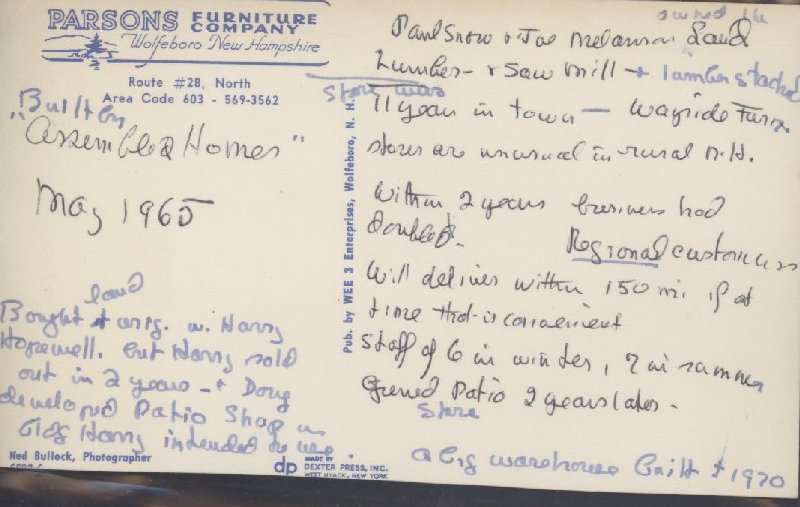 PARSONS FURNITURE COMPANY
Wolfeboro New Hampshire
Route #28, North
Area Code 603 - 569-3562
Built by
"Assembled Homes"
May 1965
land
Bought + orig. w. Harry
Hopewell. but Harry sold
out in 2 years - + Doug
developed Patio Shop in
bldg Harry intended to use
Ned Bullock, Photographer
dp
MADE BY
DEXTER PRESS, INC.
WEST NYACK, NEW YORK
Pub. by WEE 3 Enterprises, Wolfeboro, N. H.
owned the
Paul Snow + Joe Melanson Land
Lumber - + Saw Mill - + lumber stacked
Store was
11 years in town - Wayside Furn.
stores are unusual in rural N.H.
Within 2 years business had
doubled. Regional customers
Will deliver within 150 mi. if at
time that is convenient
Staff of 6 in winter, 7 in summer
Opened Patio 2 years later.
Store
a big warehouse built + 1970